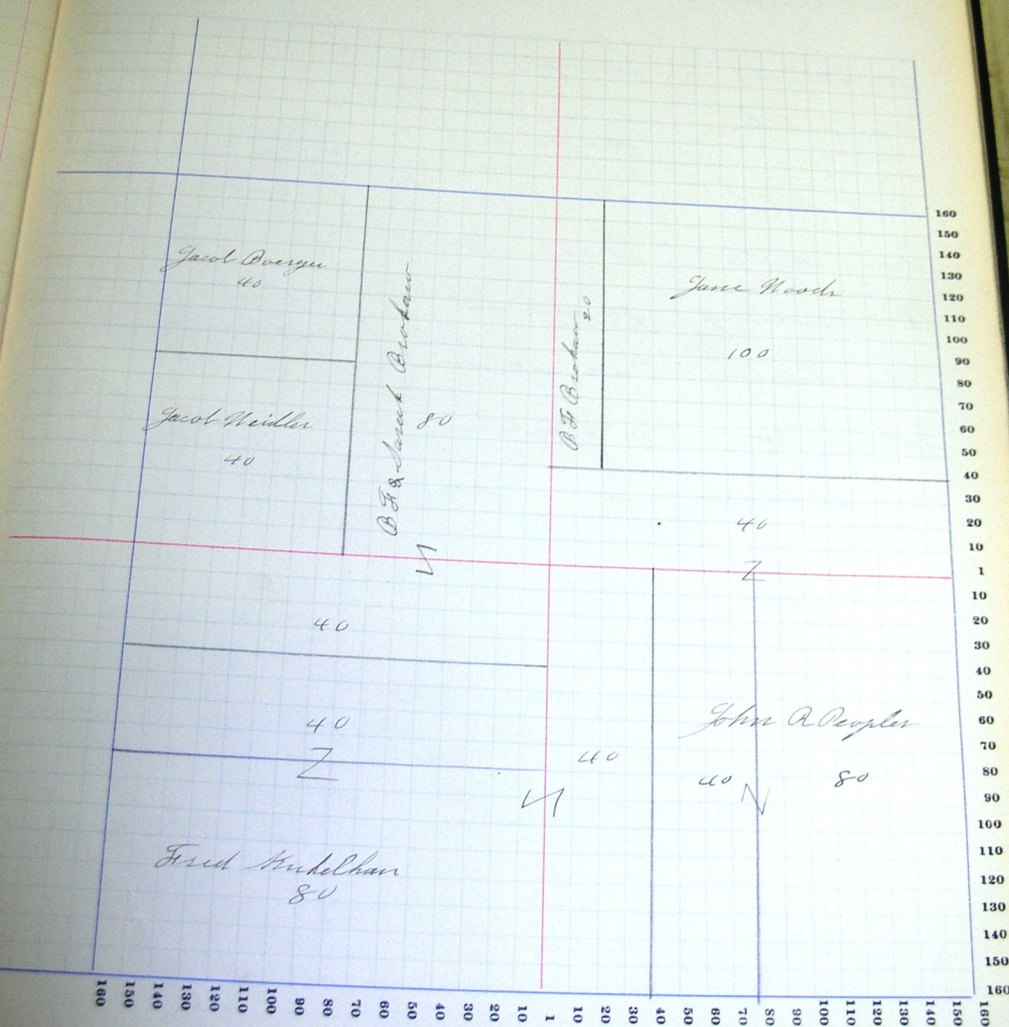 Jacob Boerger
40
Jacob Neidler
40
B F & Sarah Brokaw
80
B F Brokaw 20
Jane Woods
100
40
Z
N
40
40
Z
40
N
Fred
80
John R Peoples
40
N
80
160
150
140
130
120
110
100
90
80
70
60
50
40
30
20
10
1
10
20
30
40
50
60
70
80
90
100
110
120
130
140
150
160
160 150 140 130 120 110 100 90 80 70 60 50 40 30 20 10 1 10 20 30 40 50 60 70 80 90 100 110 120 130 140 150 160